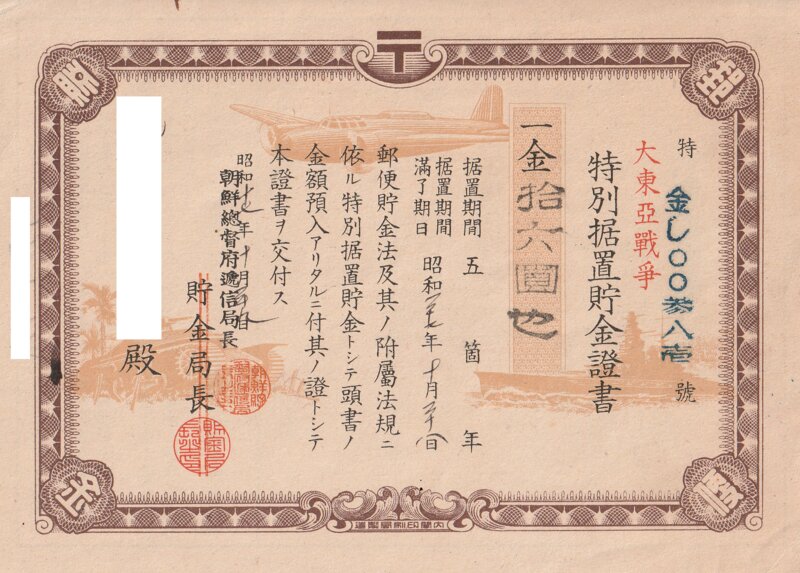 特 金し〇〇参八壱 號
大東亞戰爭
特別据置貯金證書
一金拾六圓也
据置期間 五箇年
据置期間
滿了期日 昭和 年十月 日
郵便貯金法及其ノ附屬法規ニ
依ル特別据置貯金トシテ頭書ノ
金額預入アリタルニ付其ノ證トシテ
本證書ヲ交付ス
昭和十七年十月 日
朝鮮總督府遞信局長
貯金局長
殿
內閣印刷局製造